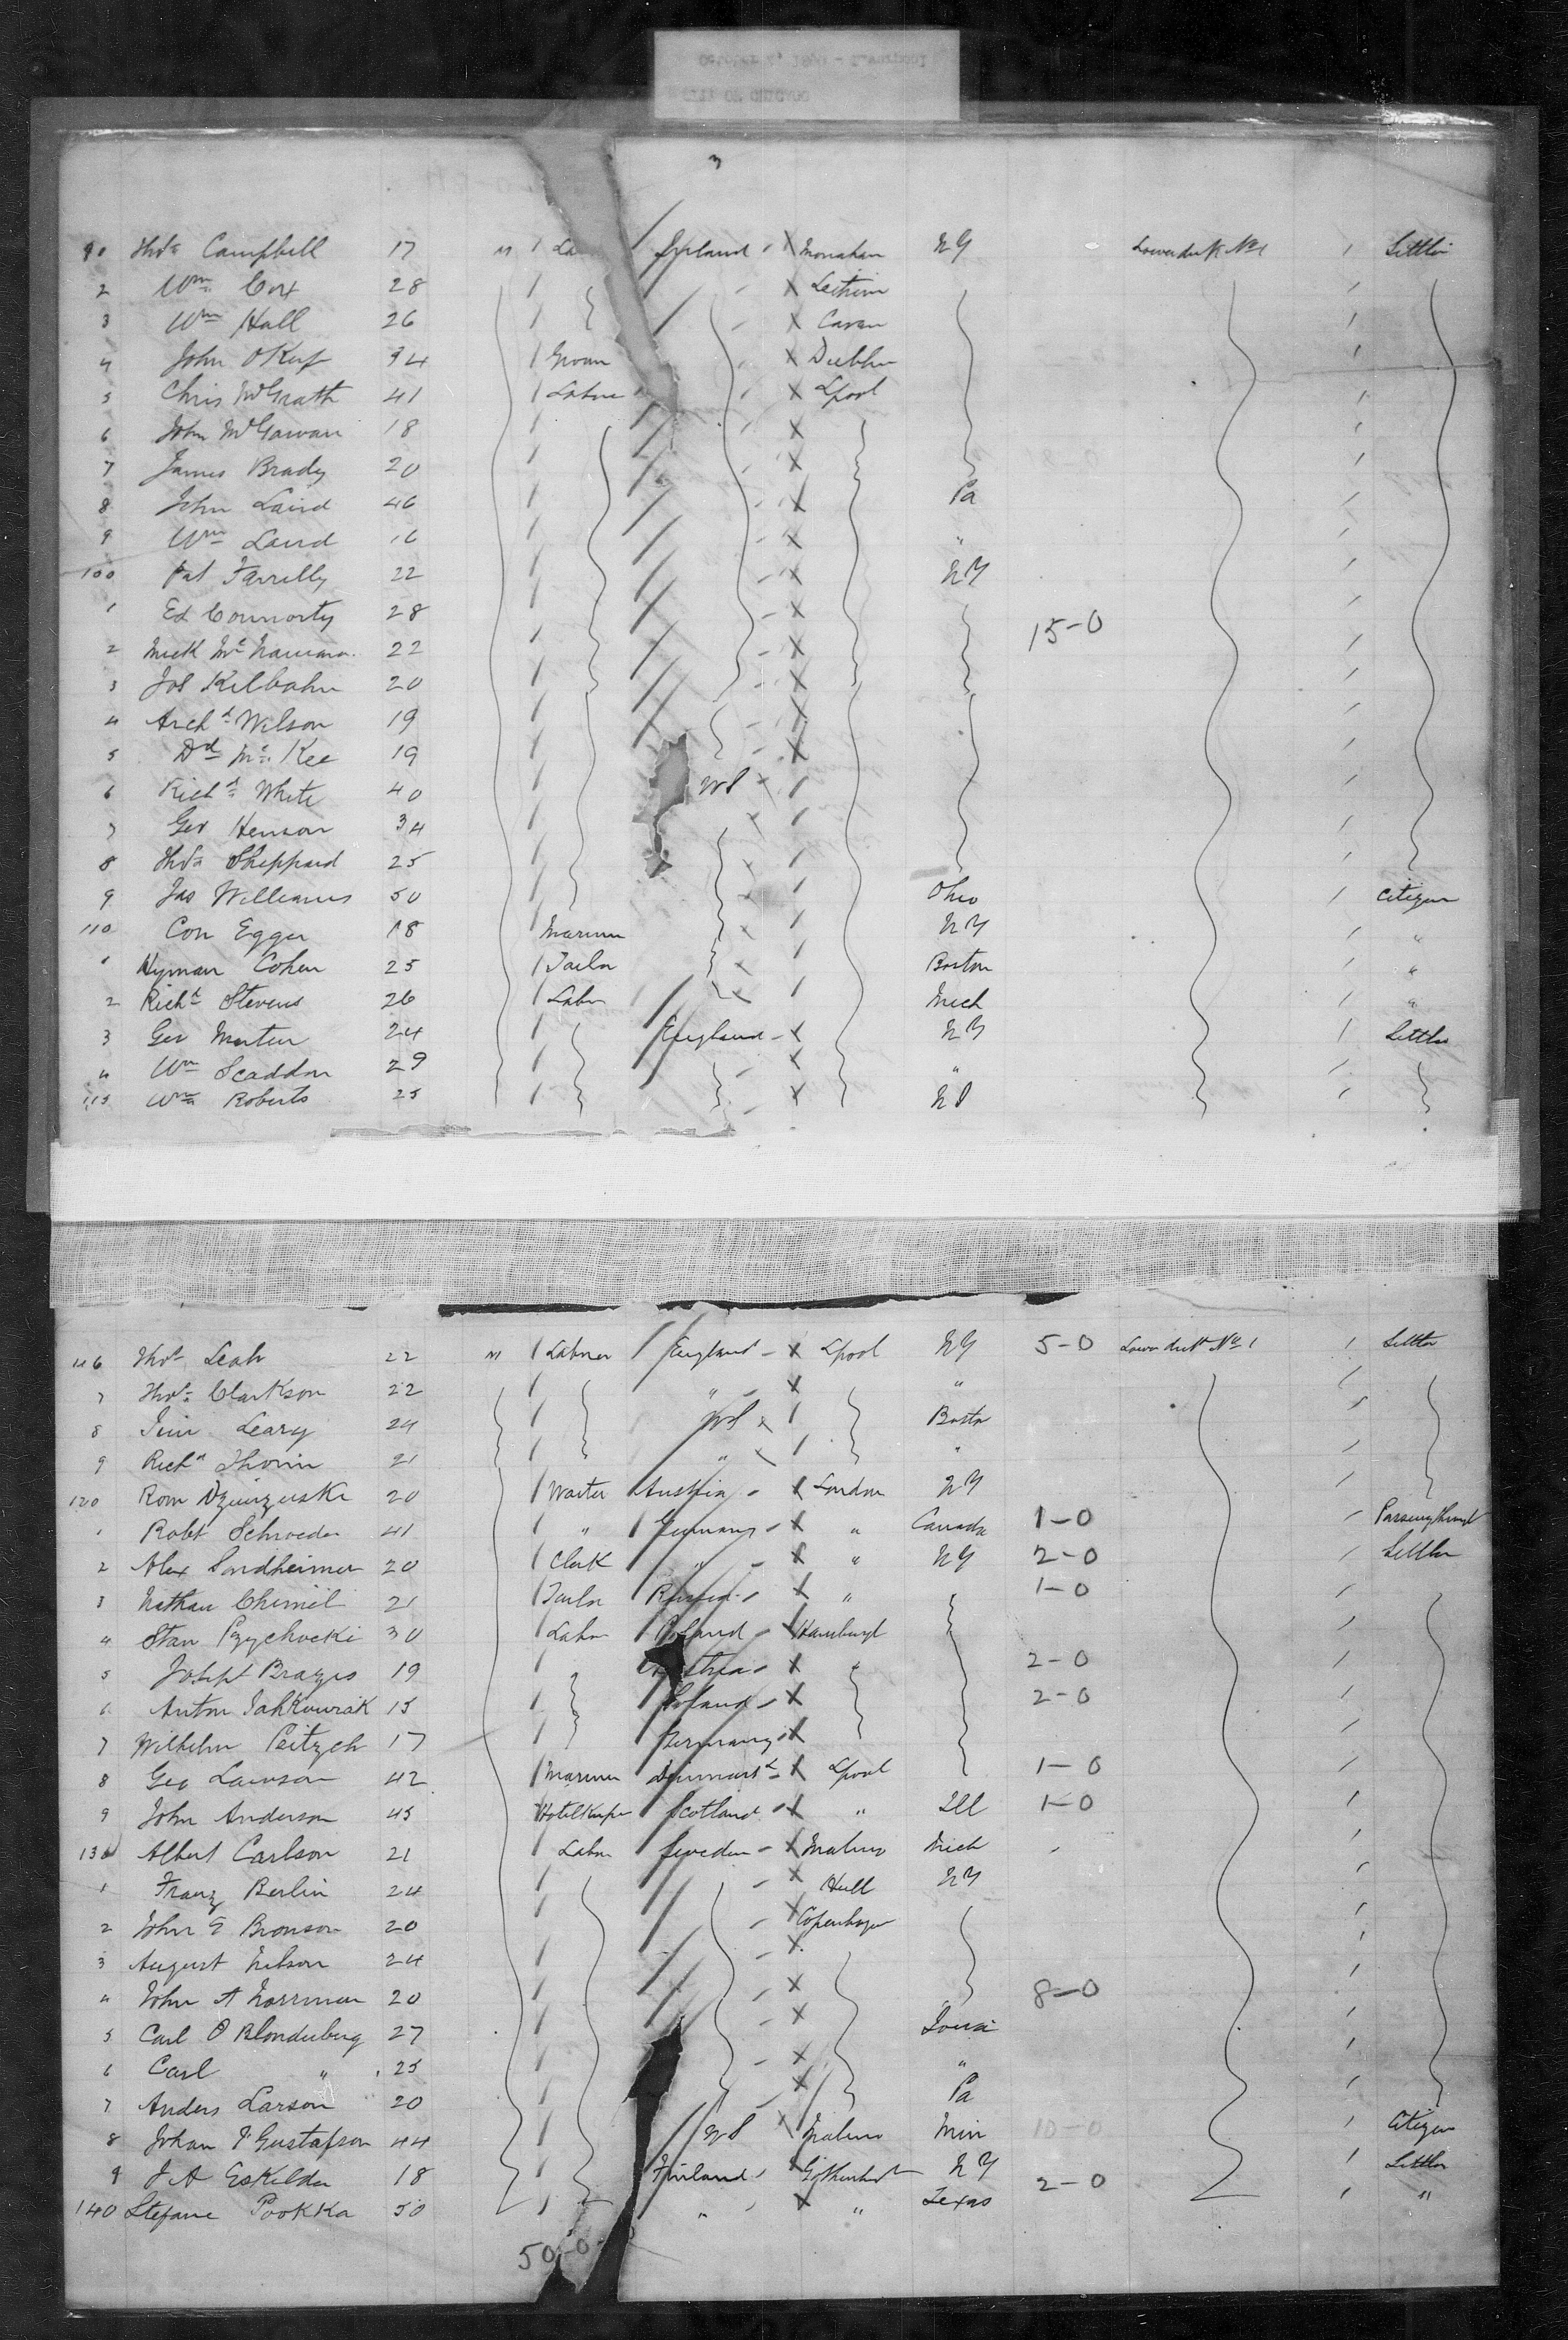 3
90 Thos Campbell 17 m 1 La Ireland Monahan NY Lower deck No 1 1 Settler
2 Wm Cox 28 1 X Leitrim
3 Wm Hall 26 1 X Cavan
4 John OKeef 34 1 Groom X Dublin
5 Chris McGrath 41 1 Labour X Lpool
6 John McGowan 18 1 X
7 James Brady 20 1 X
8 John Laird 46 1 X Pa
9 Wm Laird 16 1 X "
100 Pat Farrelly 22 1 X NY
1 Ed Connorty 28 1 X 15-0
2 Mick McNamara 22 1 X
3 Jos Kilbahn 20 1 X
4 Archd Wilson 19 1 X
5 Dd McKee 19 1 X
6 Richd White 40 1 US X 1
7 Geo Henson 34 1 X 1
8 Thos Sheppard 25 1 X 1
9 Jas Williams 50 1 X 1 Ohio 1 Citizen
110 Con Egger 18 1 Mariner X 1 NY "
1 Hyman Cohen 25 1 Tailor X 1 Boston "
2 Richd Stevens 26 1 Labr X 1 Mich "
3 Geo Martin 24 1 England X NY 1 Settler
4 Wm Scaddon 29 1 X "
115 Wm Roberts 25 1 X
116 Thos Leah 22 m 1 Labourer England X Lpool NY 5-0 Lower deck No 1 1 Settler
7 Thos Clarkson 22 1 " X "
8 Jim Leary 24 1 US X 1 Boston
9 Richd 21 1 " X 1 "
120 Rom 20 1 Waiter Austria X London NY
1 Robt Schroeder 41 " Germany X " Canada 1-0 Passing through
2 Alex Sondheimer 20 1 Clerk " X " NY 2-0 Settler
3 Nathan Chimel 21 1 Tailor Russia X " 1-0
4 Stan Pzychocki 30 Labr Poland X Hamburg
5 Joseph Brazis 19 1 X " 2-0
6 Anton 15 1 Poland X 2-0
7 Wilhelm Peitzch 17 1 Germany X
8 Geo Lawson 42 1 Mariner Denmark X Lpool 1-0
9 John Anderson 45 Hotelkeeper Scotland X " Ill 1-0
130 Albert Carlson 21 1 Labr Sweden X Malmo Mich
1 Franz Berlin 24 1 X Hull NY
2 John E Bronson 20 1 X Copenhagen
3 August Nilson 24 1 X
4 John A Norrman 20 1 X 8-0
5 Carl O Blonderberg 27 1 X Iowa
6 Carl " 25 1 X "
7 Anders Larson 20 1 X Pa
8 Johan P Gustafson 44 1 US X Malmo Min 10-0 1 Citizen
9 J A Eskilda 18 1 Finland X NY 2-0 1 Settler
140 Stefane Pookka 50 1 " X " Texas "
50-0